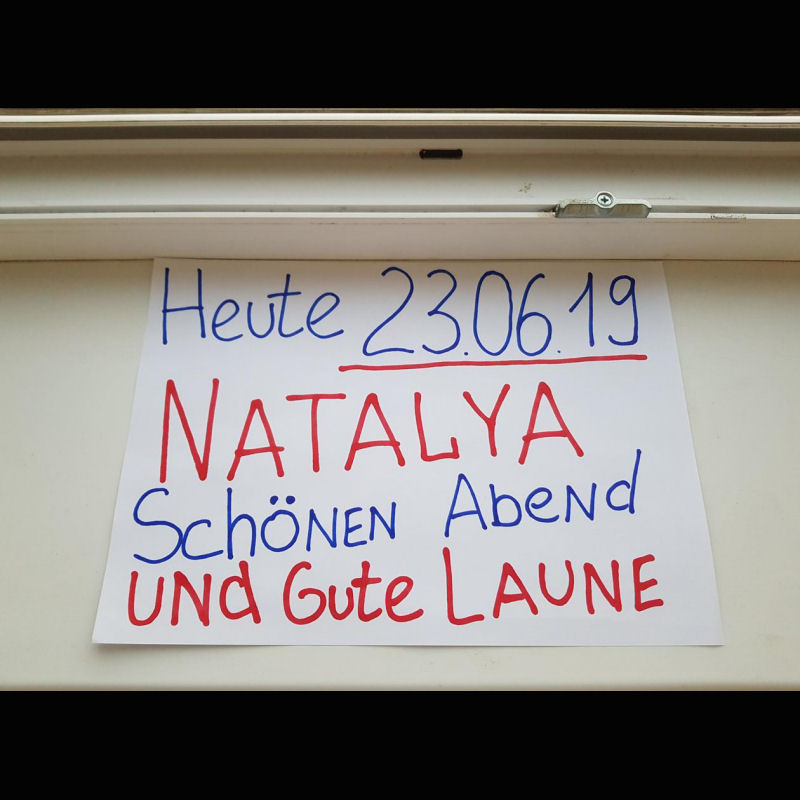 Heute 23.06.19
NATALYA
SchÖNEN AbeNd
UNd Gute LAUNE